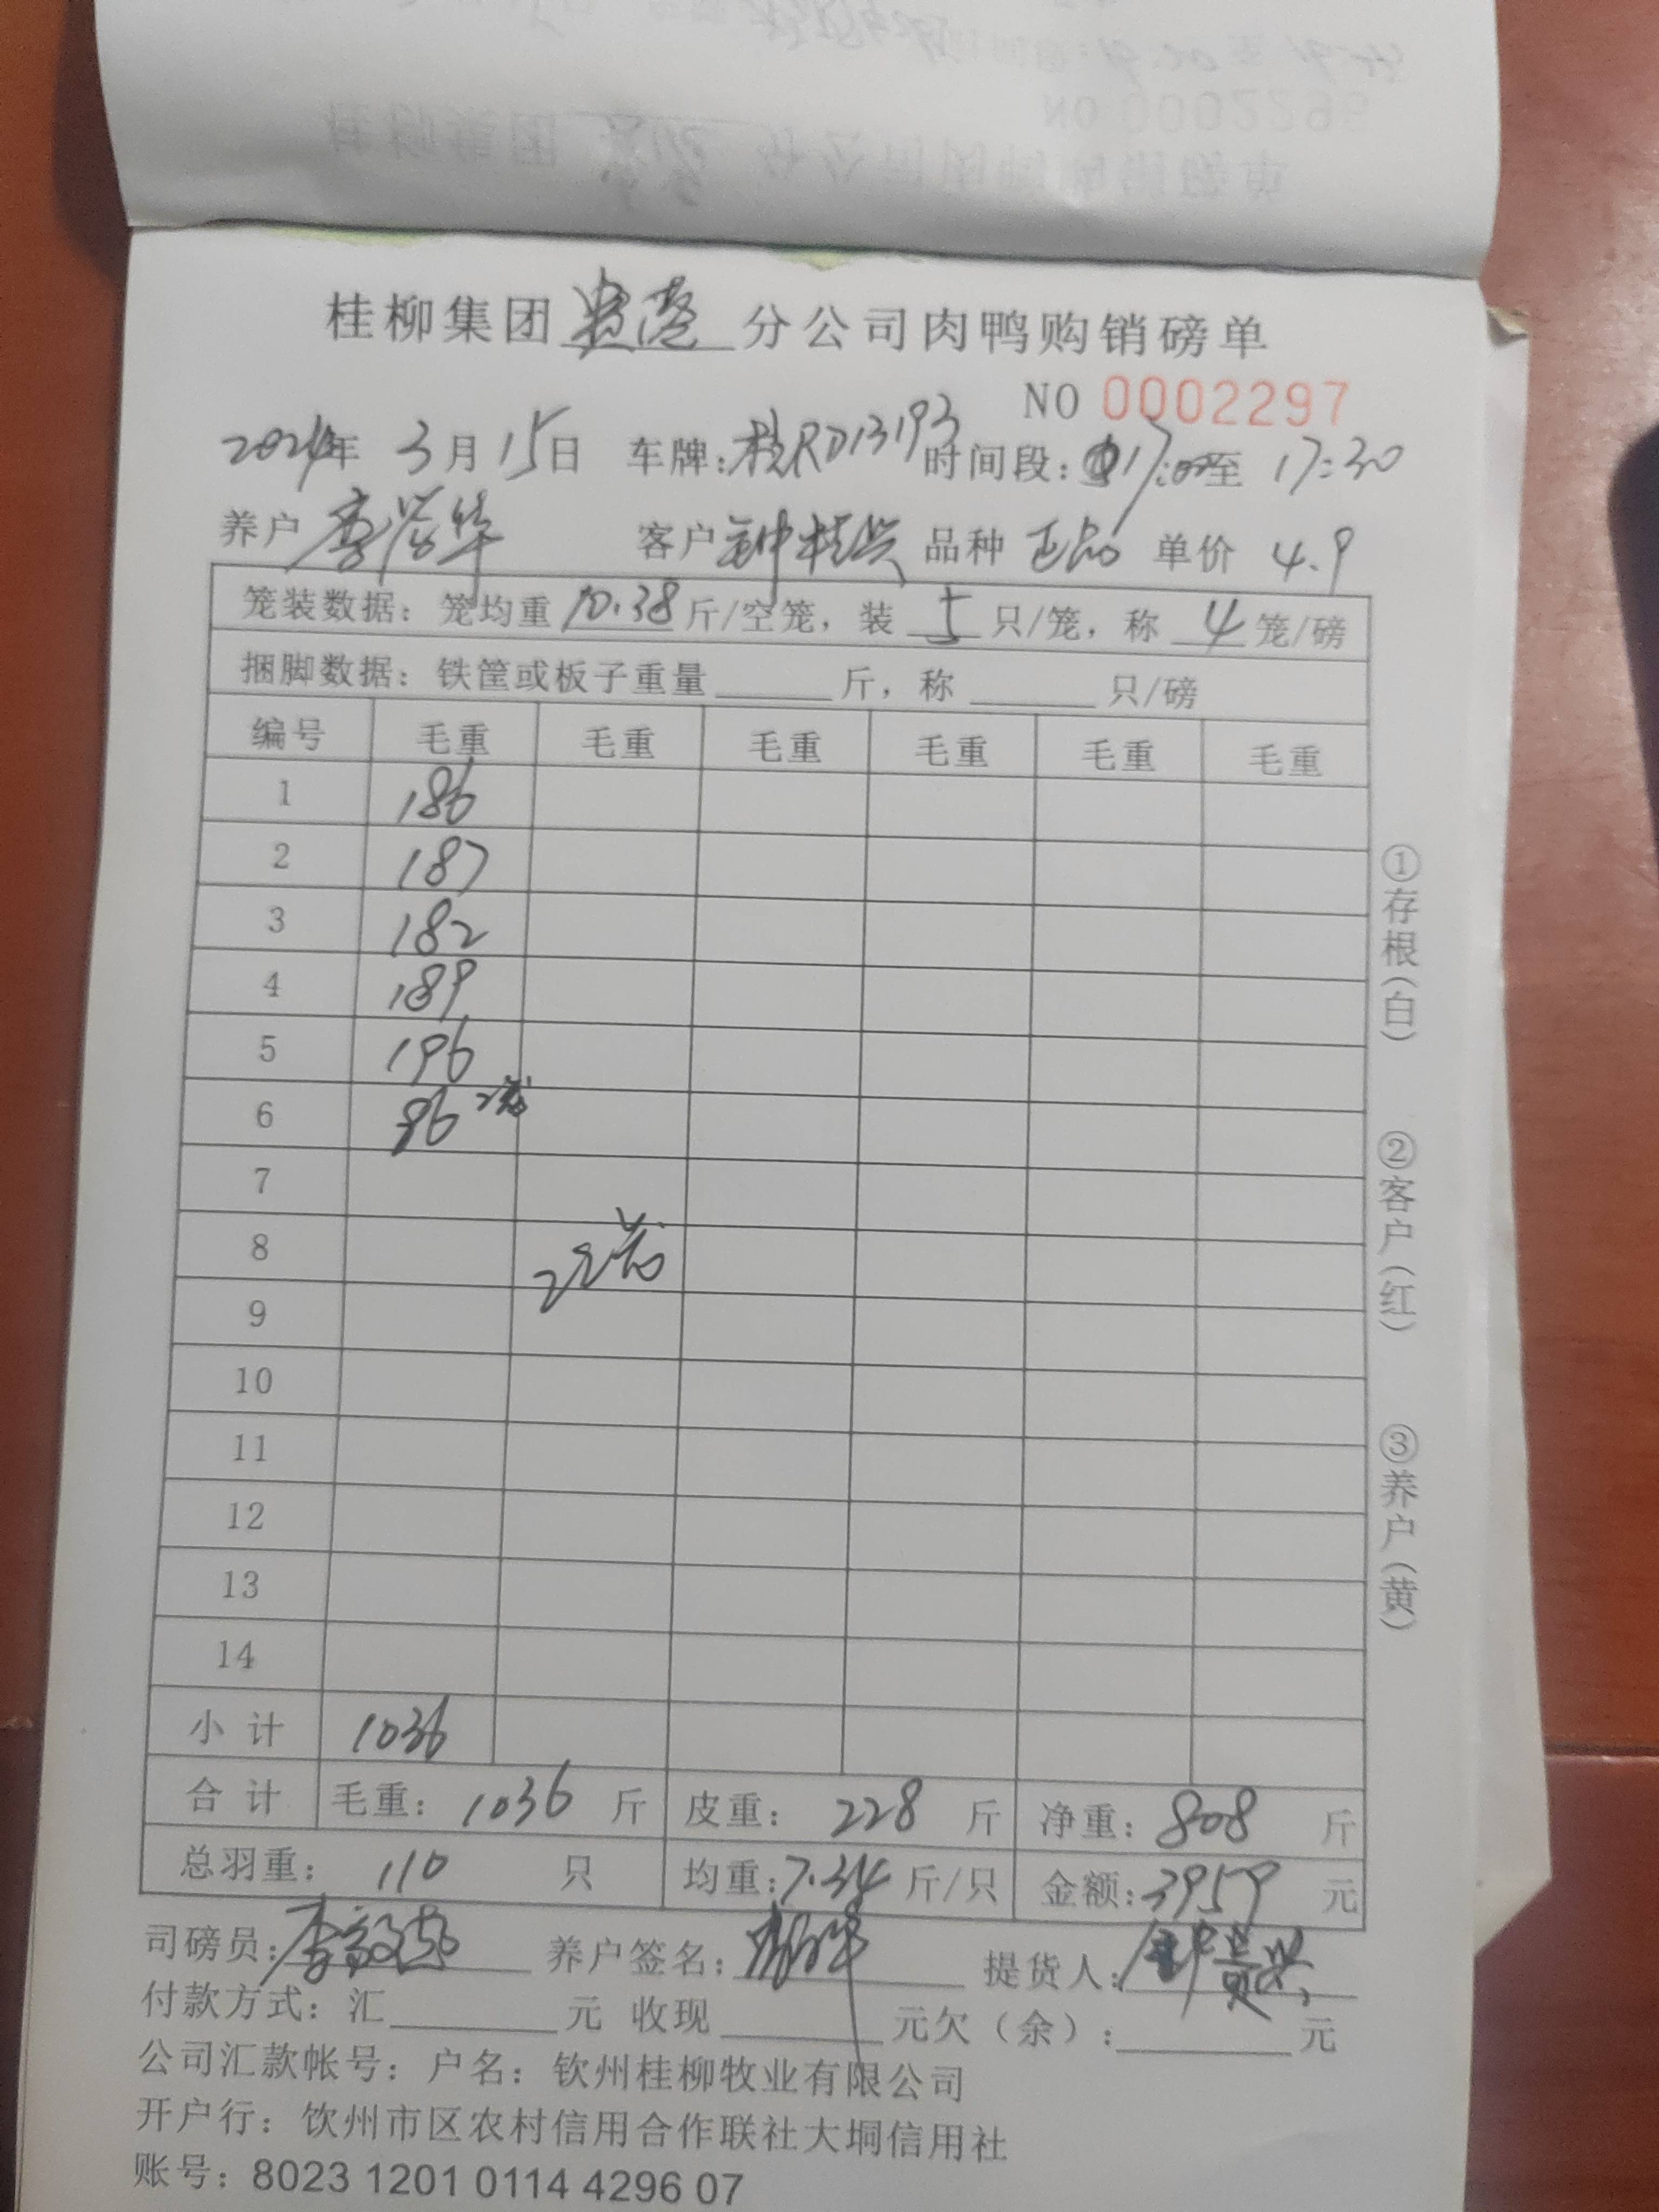 桂柳集团贵港分公司肉鸭购销磅单
NO 0002297
2024年 3月15日 车牌:桂RD13193 时间段:17:00至 17:30
养户 客户 钟桂兴 品种 正品 单价 4.9
笼装数据: 笼均重 10.38 斤/空笼, 装 5 只/笼, 称 4 笼/磅
捆脚数据: 铁筐或板子重量 斤, 称 只/磅
编号 毛重 毛重 毛重 毛重 毛重 毛重
1 186
2 187
3 182
4 189
5 196
6 86 2笼
7
8 22笼
9
10
11
12
13
14
小计 1036
合计 毛重: 1036 斤 皮重: 228 斤 净重: 808 斤
总羽重: 110 只 均重:7.34斤/只 金额:3959 元
司磅员: 养户签名: 提货人:
付款方式: 汇 元 收现 元欠(余): 元
公司汇款帐号: 户名: 钦州桂柳牧业有限公司
开户行: 饮州市区农村信用合作联社大垌信用社
账号: 8023 1201 0114 4296 07
①存根(白)
②客户(红)
③养户(黄)